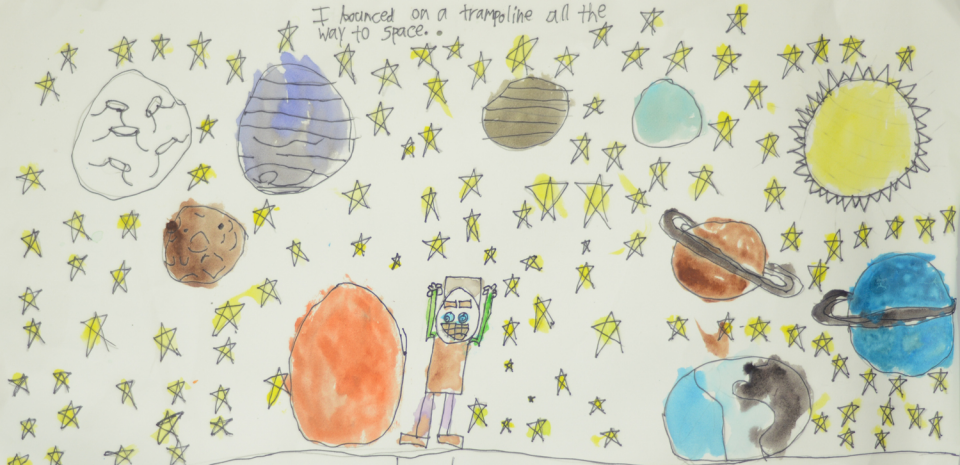 I bounced on a trampoline all the
way to space..